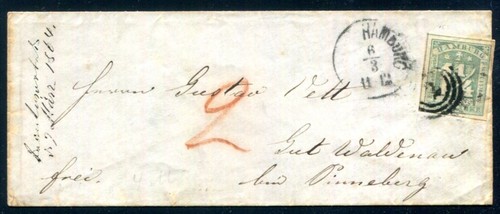 HAMBURG
6
3
11-12
HAMBURG
Herrn Gustav Vett
2
Gut Waldenau
frei.
bei Pinneberg
März 1864.